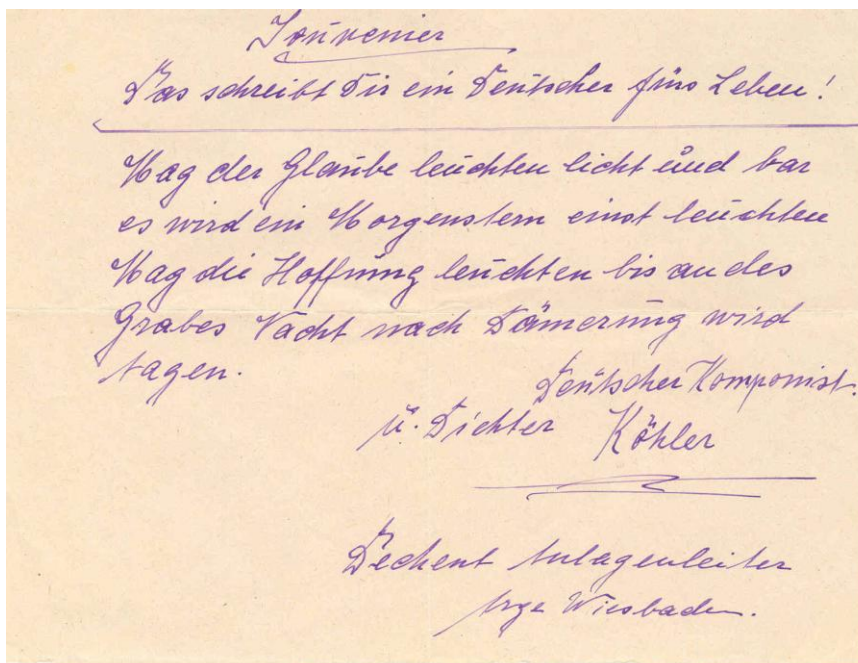 Souvenier
Das schreibt Dir ein Deutscher fürs Leben!
Mag der Glaube leuchten licht und bar
es wird ein Morgenstern einst leuchten
Mag die Hoffnung leuchten bis an des
Grabes Nacht nach Dämerung wird
tagen.
Deutscher Komponist.
u. Dichter Köhler
Dechent Anlagenleiter
Wiesbaden.